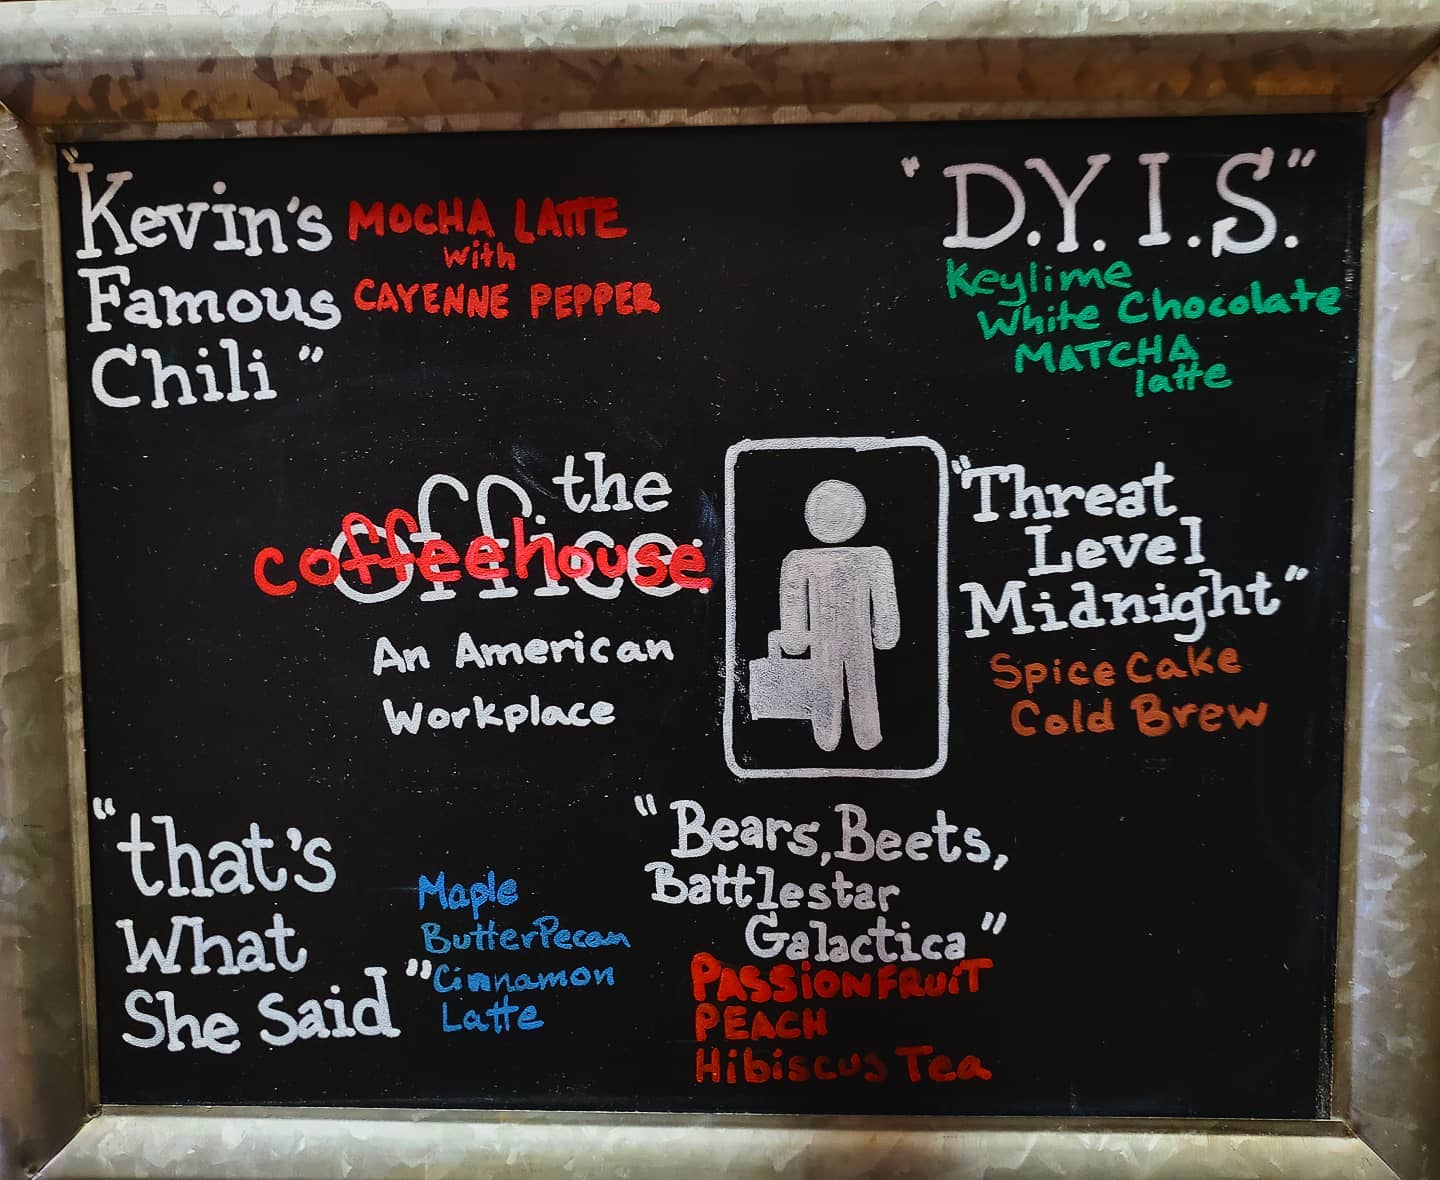 "Kevin's
Famous
Chili"
MOCHA LATTE
with
CAYENNE PEPPER
"D.Y.I.S."
Keylime
White Chocolate
MATCHA
latte
the
office.
coffeehouse
An American
Workplace
"Threat
Level
Midnight"
Spice Cake
Cold Brew
"that's
What
She Said"
Maple
ButterPecan
Cinnamon
Latte
"Bears, Beets,
Battlestar
Galactica"
PASSIONFRUiT
PEACH
Hibiscus Tea